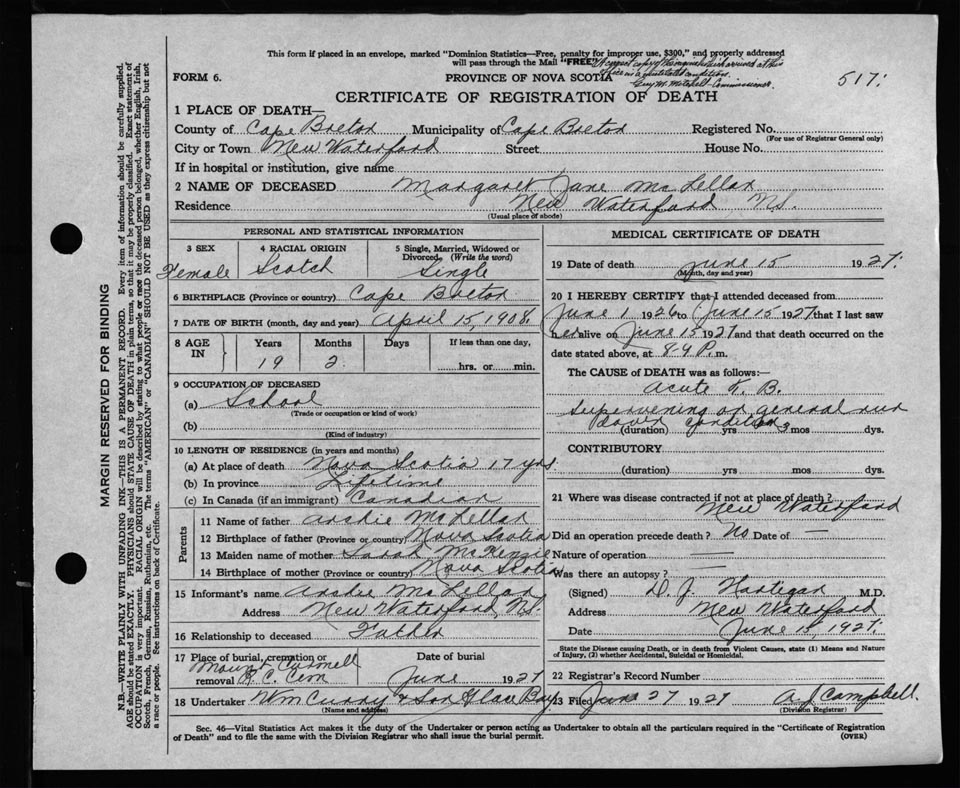 This form if placed in an envelope, marked "Dominion Statistics—Free, penalty for improper use, $300," and properly addressed
will pass through the Mail "FREE"
A correct copy of the
Guy M. Mitchell Commissioner.
FORM 6.
PROVINCE OF NOVA SCOTIA
517:
CERTIFICATE OF REGISTRATION OF DEATH
1 PLACE OF DEATH—
County of Cape Breton Municipality of Cape Breton Registered No.
(For use of Registrar General only)
City or Town New Waterford Street House No.
If in hospital or institution, give name
2 NAME OF DECEASED Margaret Jane McLellan
Residence New Waterford N.S.
(Usual place of abode)
PERSONAL AND STATISTICAL INFORMATION
3 SEX 4 RACIAL ORIGIN 5 Single, Married, Widowed or
Divorced. (Write the word)
Female Scotch Single
6 BIRTHPLACE (Province or country) Cape Breton
7 DATE OF BIRTH (month, day and year) April 15, 1908.
8 AGE IN Years Months Days If less than one day,
19 2 hrs. or min.
9 OCCUPATION OF DECEASED
(a) School
(Trade or occupation or kind of work)
(b)
(Kind of industry)
10 LENGTH OF RESIDENCE (in years and months)
(a) At place of death Nova Scotia 17 yrs.
(b) In province Lifetime
(c) In Canada (if an immigrant) Canadian
Parents
11 Name of father Archie McLellan
12 Birthplace of father (Province or country) Nova Scotia
13 Maiden name of mother Sarah McKenzie
14 Birthplace of mother (Province or country) Nova Scotia
15 Informant's name Archie McLellan
Address New Waterford, N.S.
16 Relationship to deceased Father
17 Place of burial, cremation or Date of burial
removal Mount Carmell
R. C. Cem June 1927
18 Undertaker Wm Curry & Son Glace Bay
(Name and address)
MEDICAL CERTIFICATE OF DEATH
19 Date of death June 15 1927.
(Month, day and year)
20 I HEREBY CERTIFY that I attended deceased from
June 1 1926 to June 15 1927 that I last saw
her alive on June 15 1927 and that death occurred on the
date stated above, at P. m.
The CAUSE of DEATH was as follows:—
Acute T. B.
Supervening on general run
down condition
(duration) yrs 3 mos dys.
CONTRIBUTORY
(duration) yrs mos dys.
21 Where was disease contracted if not at place of death?
New Waterford
Did an operation precede death? No Date of —
Nature of operation —
Was there an autopsy? —
(Signed) D. J. Hartigan M.D.
Address New Waterford
Date June 15, 1927.
State the Disease causing Death, or in death from Violent Causes, state (1) Means and Nature
of Injury, (2) whether Accidental, Suicidal or Homicidal.
22 Registrar's Record Number
23 Filed June 27 1927 A. J. Campbell.
(Division Registrar)
Sec. 46—Vital Statistics Act makes it the duty of the Undertaker or person acting as Undertaker to obtain all the particulars required in the "Certificate of Registration
of Death" and to file the same with the Division Registrar who shall issue the burial permit. (OVER)
MARGIN RESERVED FOR BINDING
N.B.—WRITE PLAINLY WITH UNFADING INK—THIS IS A PERMANENT RECORD. Every item of information should be carefully supplied.
AGE should be stated EXACTLY. PHYSICIANS should STATE CAUSE OF DEATH in plain terms, so that it may be properly classified. Exact statement of
OCCUPATION is very important. RACIAL ORIGIN will be described by stating to what people or race the deceased person belonged, whether English, Irish,
Scotch, French, German, Russian, Ruthenian, etc. The terms "AMERICAN" or "CANADIAN" SHOULD NOT BE USED as they express citizenship but not
a race or people. See instructions on back of Certificate.